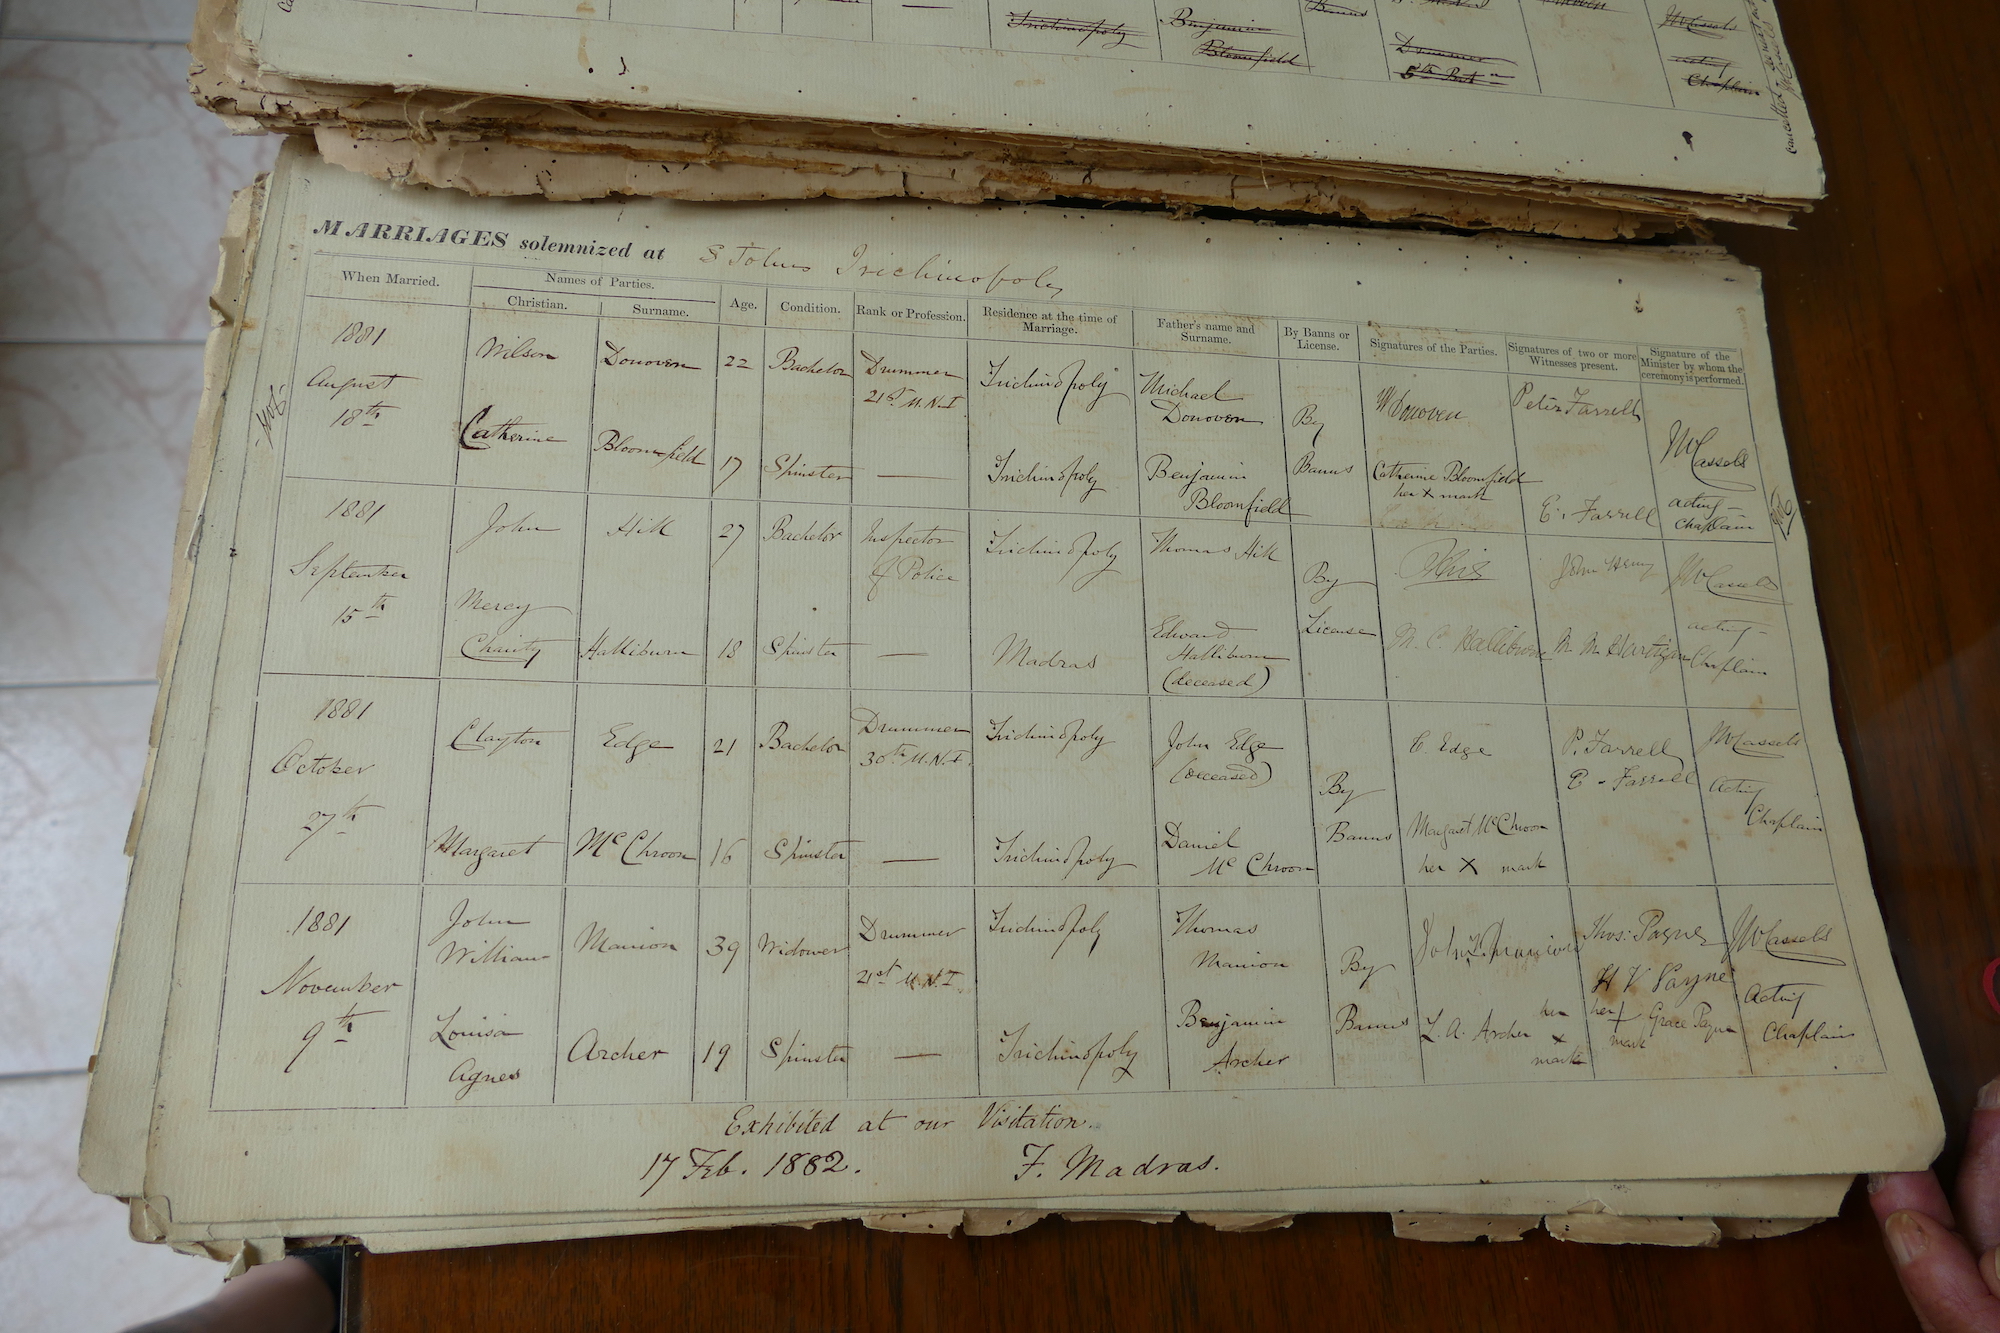 Trichinopoly
Benjamin
Bloomfield
Banns
Drummer
5th
Acting
Chaplain
Cancelled
MARRIAGES solemnized at St Johns Trichinopoly
When Married.
Names of Parties.
Christian.
Surname.
Age.
Condition.
Rank or Profession.
Residence at the time of
Marriage.
Father's name and
Surname.
By Banns or
License.
Signatures of the Parties.
Signatures of two or more
Witnesses present.
Signature of the
Minister by whom the
ceremony is performed.
1881
August
18th
Wilson Donoven 22 Bachelor Drummer
21st M.N.I
Trichinopoly
Michael
Donoven
By
Banns
W Donoven
Peter Farrell
Catherine Bloomfield 17 Spinster —
Trichinopoly
Benjamin
Bloomfield
Catherine Bloomfield
her X mark
E. Farrell
W Cassels
acting
Chaplain
1881
September
15th
John Hill 27 Bachelor Inspector
of Police
Trichinopoly
Thomas Hill
By
License
John Henry
Mercy
Charity Halliburn 18 Spinster —
Madras
Edward
Halliburn
(deceased)
M. C. Halliburn
M. M. Hartigan
W Cassels
acting
Chaplain
1881
October
27th
Clayton Edge 21 Bachelor Drummer
30th M.N.I.
Trichinopoly
John Edge
(deceased)
By
Banns
C. Edge
P. Farrell
E. Farrell
Margaret McChroon 16 Spinster —
Trichinopoly
Daniel
McChroon
Margaret McChroon
her X mark
W Cassels
Acting
Chaplain
1881
November
9th
John
William Manion 39 Widower Drummer
21st M.N.I
Trichinopoly
Thomas
Manion
By
Banns
Thos: Payne
H V Payne
Louisa
Agnes Archer 19 Spinster —
Trichinopoly
Benjamin
Archer
L. A. Archer her
X
mark
her X Grace Payne
mark
W Cassels
Acting
Chaplain
Exhibited at our Visitation.
17 Feb. 1882. F. Madras.